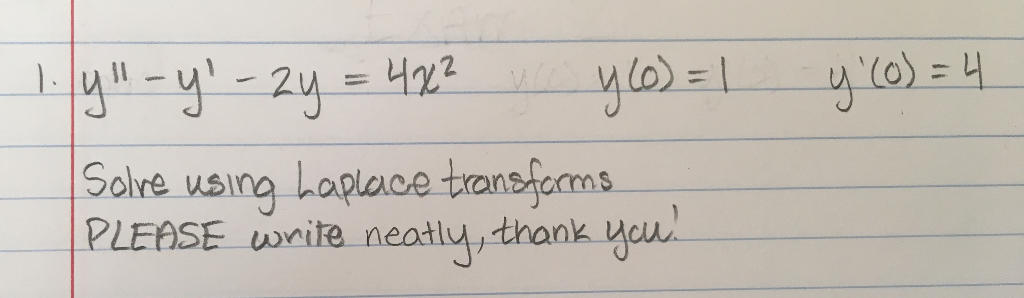 1. y'' - y' - 2y = 4x² y(0) = 1 y'(0) = 4
Solve using Laplace transforms
PLEASE write neatly, thank you!